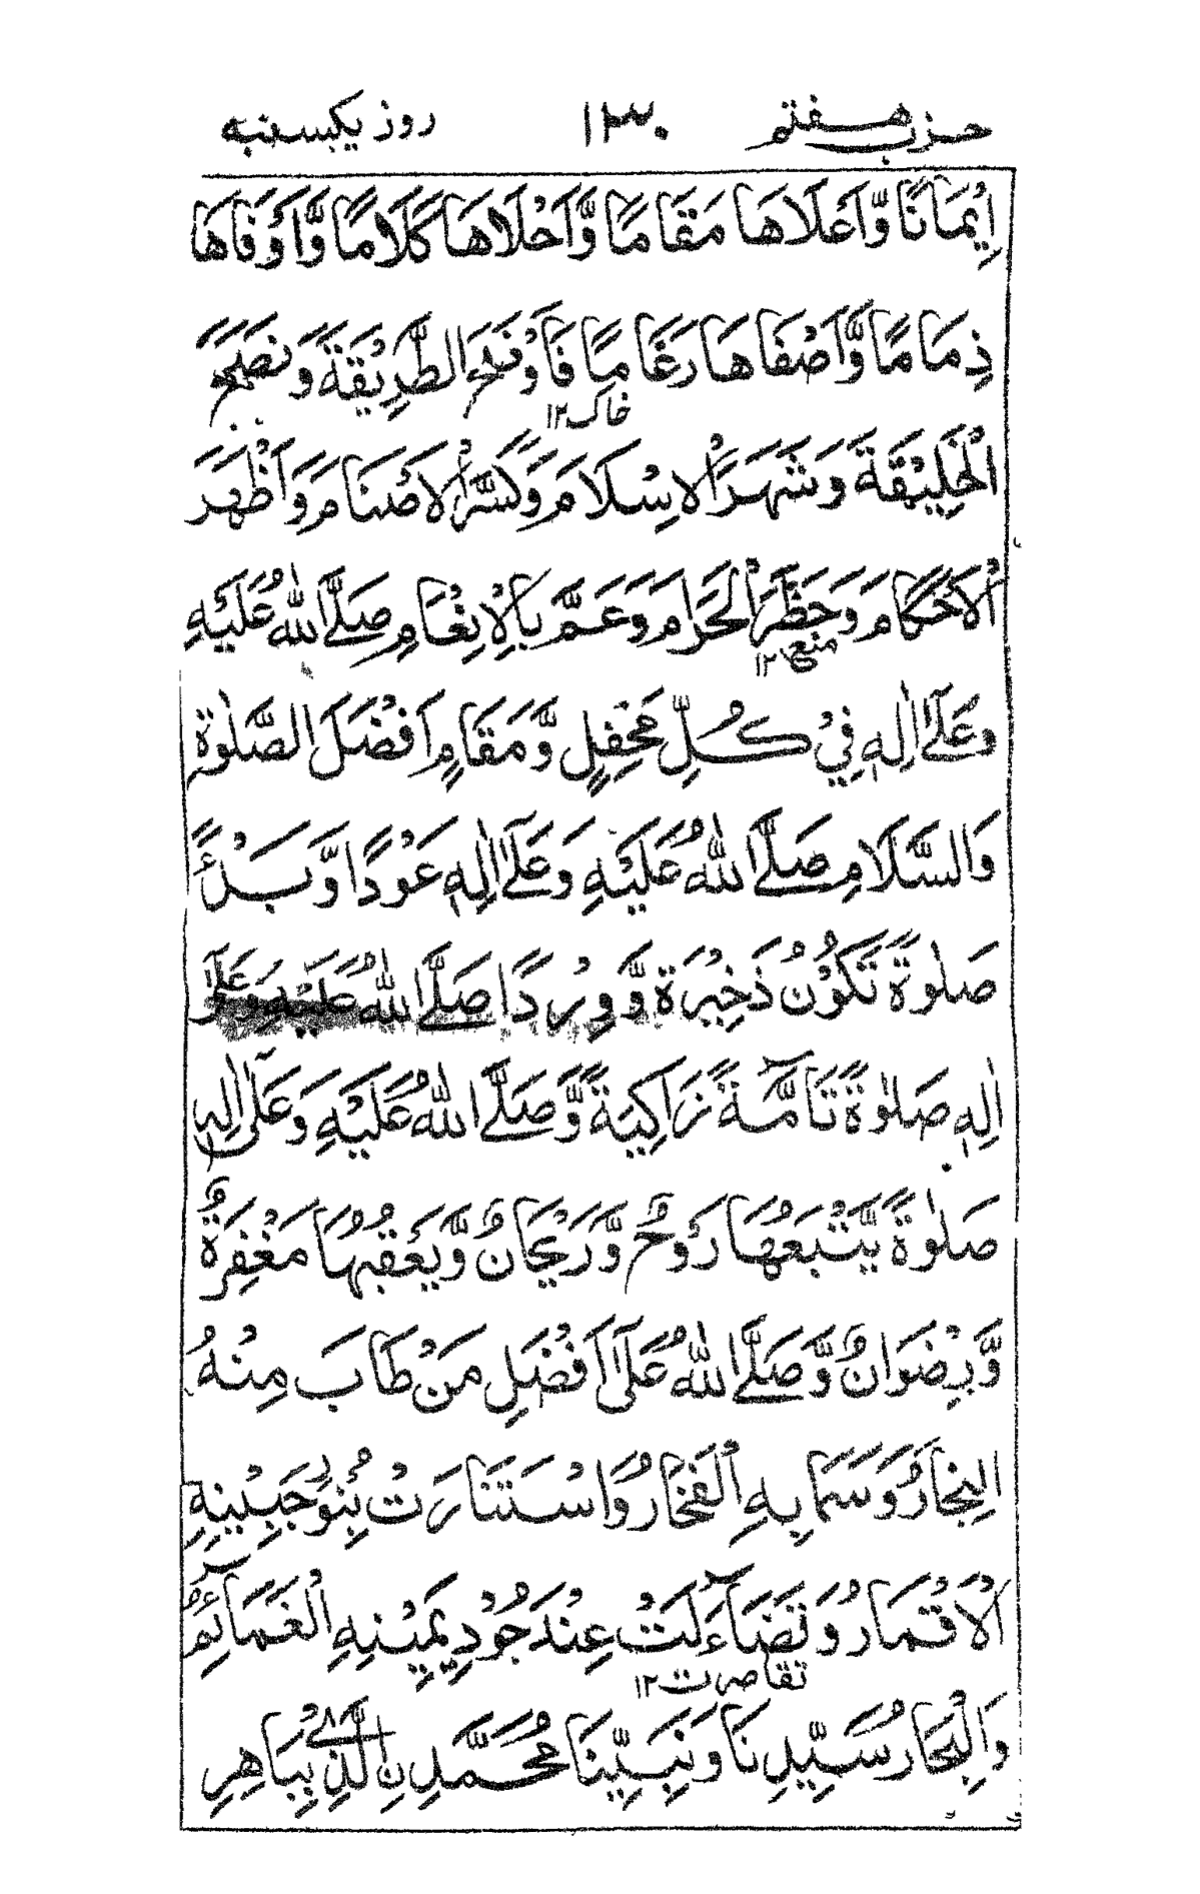 حزب هفتم ۱۳۰ روز یکشنبه
اِيْمَانًا وَّاَعْلَاهَا مَقَامًا وَّاَحْلَاهَا كَلَامًا وَّاَوْفَاهَا
ذِمَامًا وَّاَصْفَاهَا رَغَامًا فَاَوْضَحَ الطَّرِيْقَةَ وَنَصَحَ
خاک ۱۲
الْخَلِيْقَةَ وَشَهَرَ الْاِسْلَامَ وَكَسَّرَ الْاَصْنَامَ وَاَظْهَرَ
الْاَحْكَامَ وَحَظَرَ الْحَرَامَ وَعَمَّ بِالْاِنْعَامِ صَلَّى اللهُ عَلَيْهِ
منع ۱۲
وَعَلٰٓى اٰلِهٖ فِيْ كُلِّ مَحْفِلٍ وَّمَقَامٍ اَفْضَلَ الصَّلٰوةِ
وَالسَّلَامِ صَلَّى اللهُ عَلَيْهِ وَعَلٰٓى اٰلِهٖ عَوْدًا وَّبَدْءً
صَلٰوةً تَكُوْنُ ذَخِيْرَةً وَّوِرْدًا صَلَّى اللهُ عَلَيْهِ وَعَلٰٓى
اٰلِهٖ صَلٰوةً تَآمَّةً زَاكِيَةً وَّصَلَّى اللهُ عَلَيْهِ وَعَلٰٓى اٰلِهٖ
صَلٰوةً يَّتْبَعُهَا رَوْحٌ وَّرَيْحَانٌ وَّيَعْقُبُهَا مَغْفِرَةٌ
وَّرِضْوَانٌ وَّصَلَّى اللهُ عَلٰٓى اَفْضَلِ مَنْ طَابَ مِنْهُ
النِّجَارُ وَسَمَا بِهِ الْفَخَارُ وَاسْتَنَارَتْ بِنُوْرِ جَبِيْنِهِ
الْاَقْمَارُ وَتَضَآءَلَتْ عِنْدَ جُوْدِ يَمِيْنِهِ الْغَمَآئِمُ
تقاصرت ۱۲
وَالْبِحَارُ سَيِّدِنَا وَنَبِيِّنَا مُحَمَّدِ نِ الَّذِيْ بِبَاهِرِ